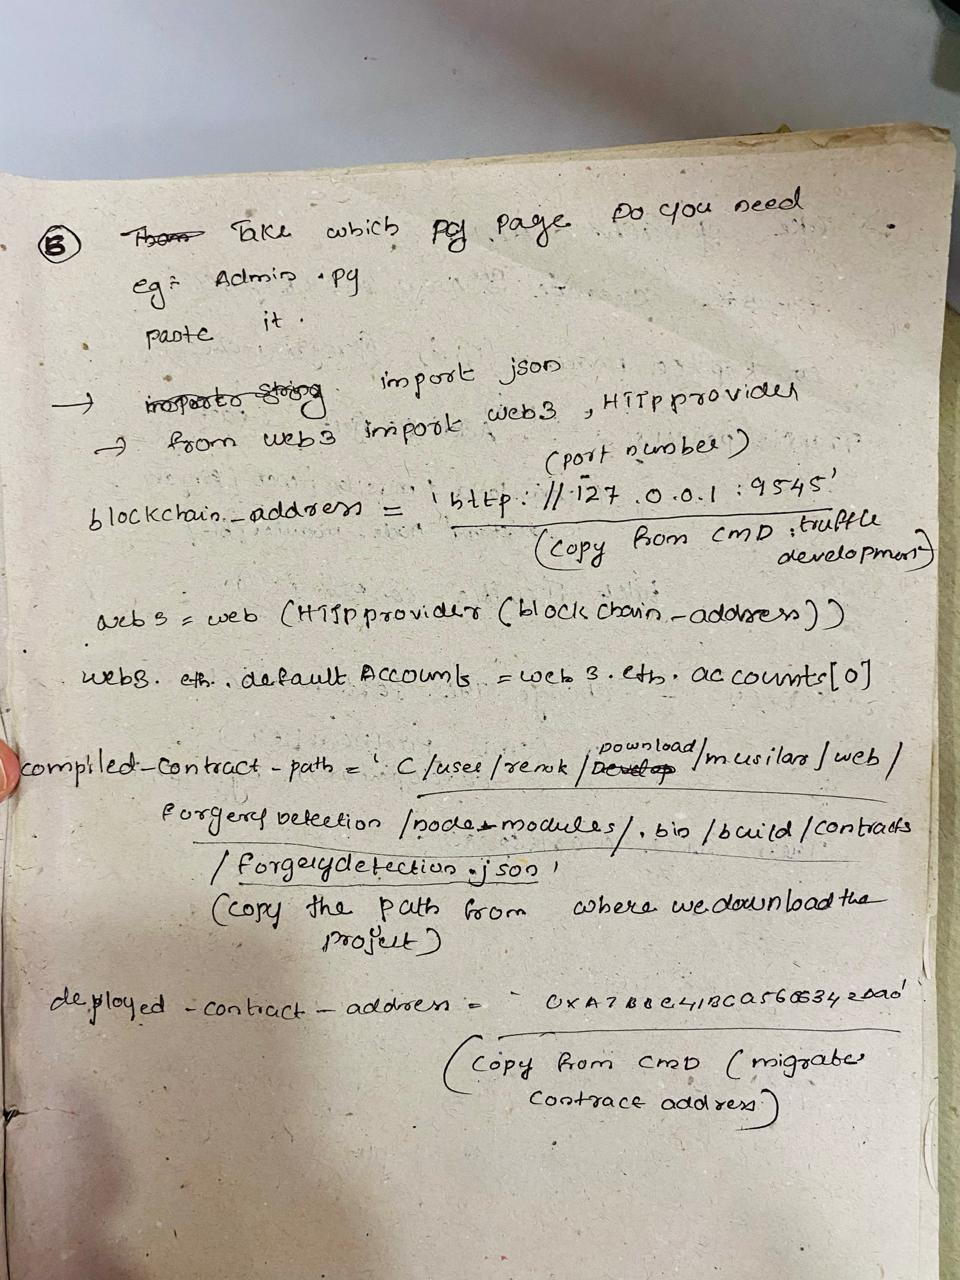 B Take which py page Do you need
eg: Admin .py
paste it.
→ import json
→ from web3 import web3, HTTPprovider
(port number)
blockchain_address = 'http://127.0.0.1:9545'
(copy from CMD : truffle
development)
web3 = web (HTTPprovider (blockchain_address))
web3. eth. default Accounts = web3.eth. accounts[0]
compiled-contract-path = ' C/user/renuk/Download/musilar/web/
ForgeryDetection/node_modules/.bin/build/contracts
/Forgerydetection.json'
(copy the path from where we download the
project)
deployed-contract-address =
(copy from CMD (migrate
contract address)